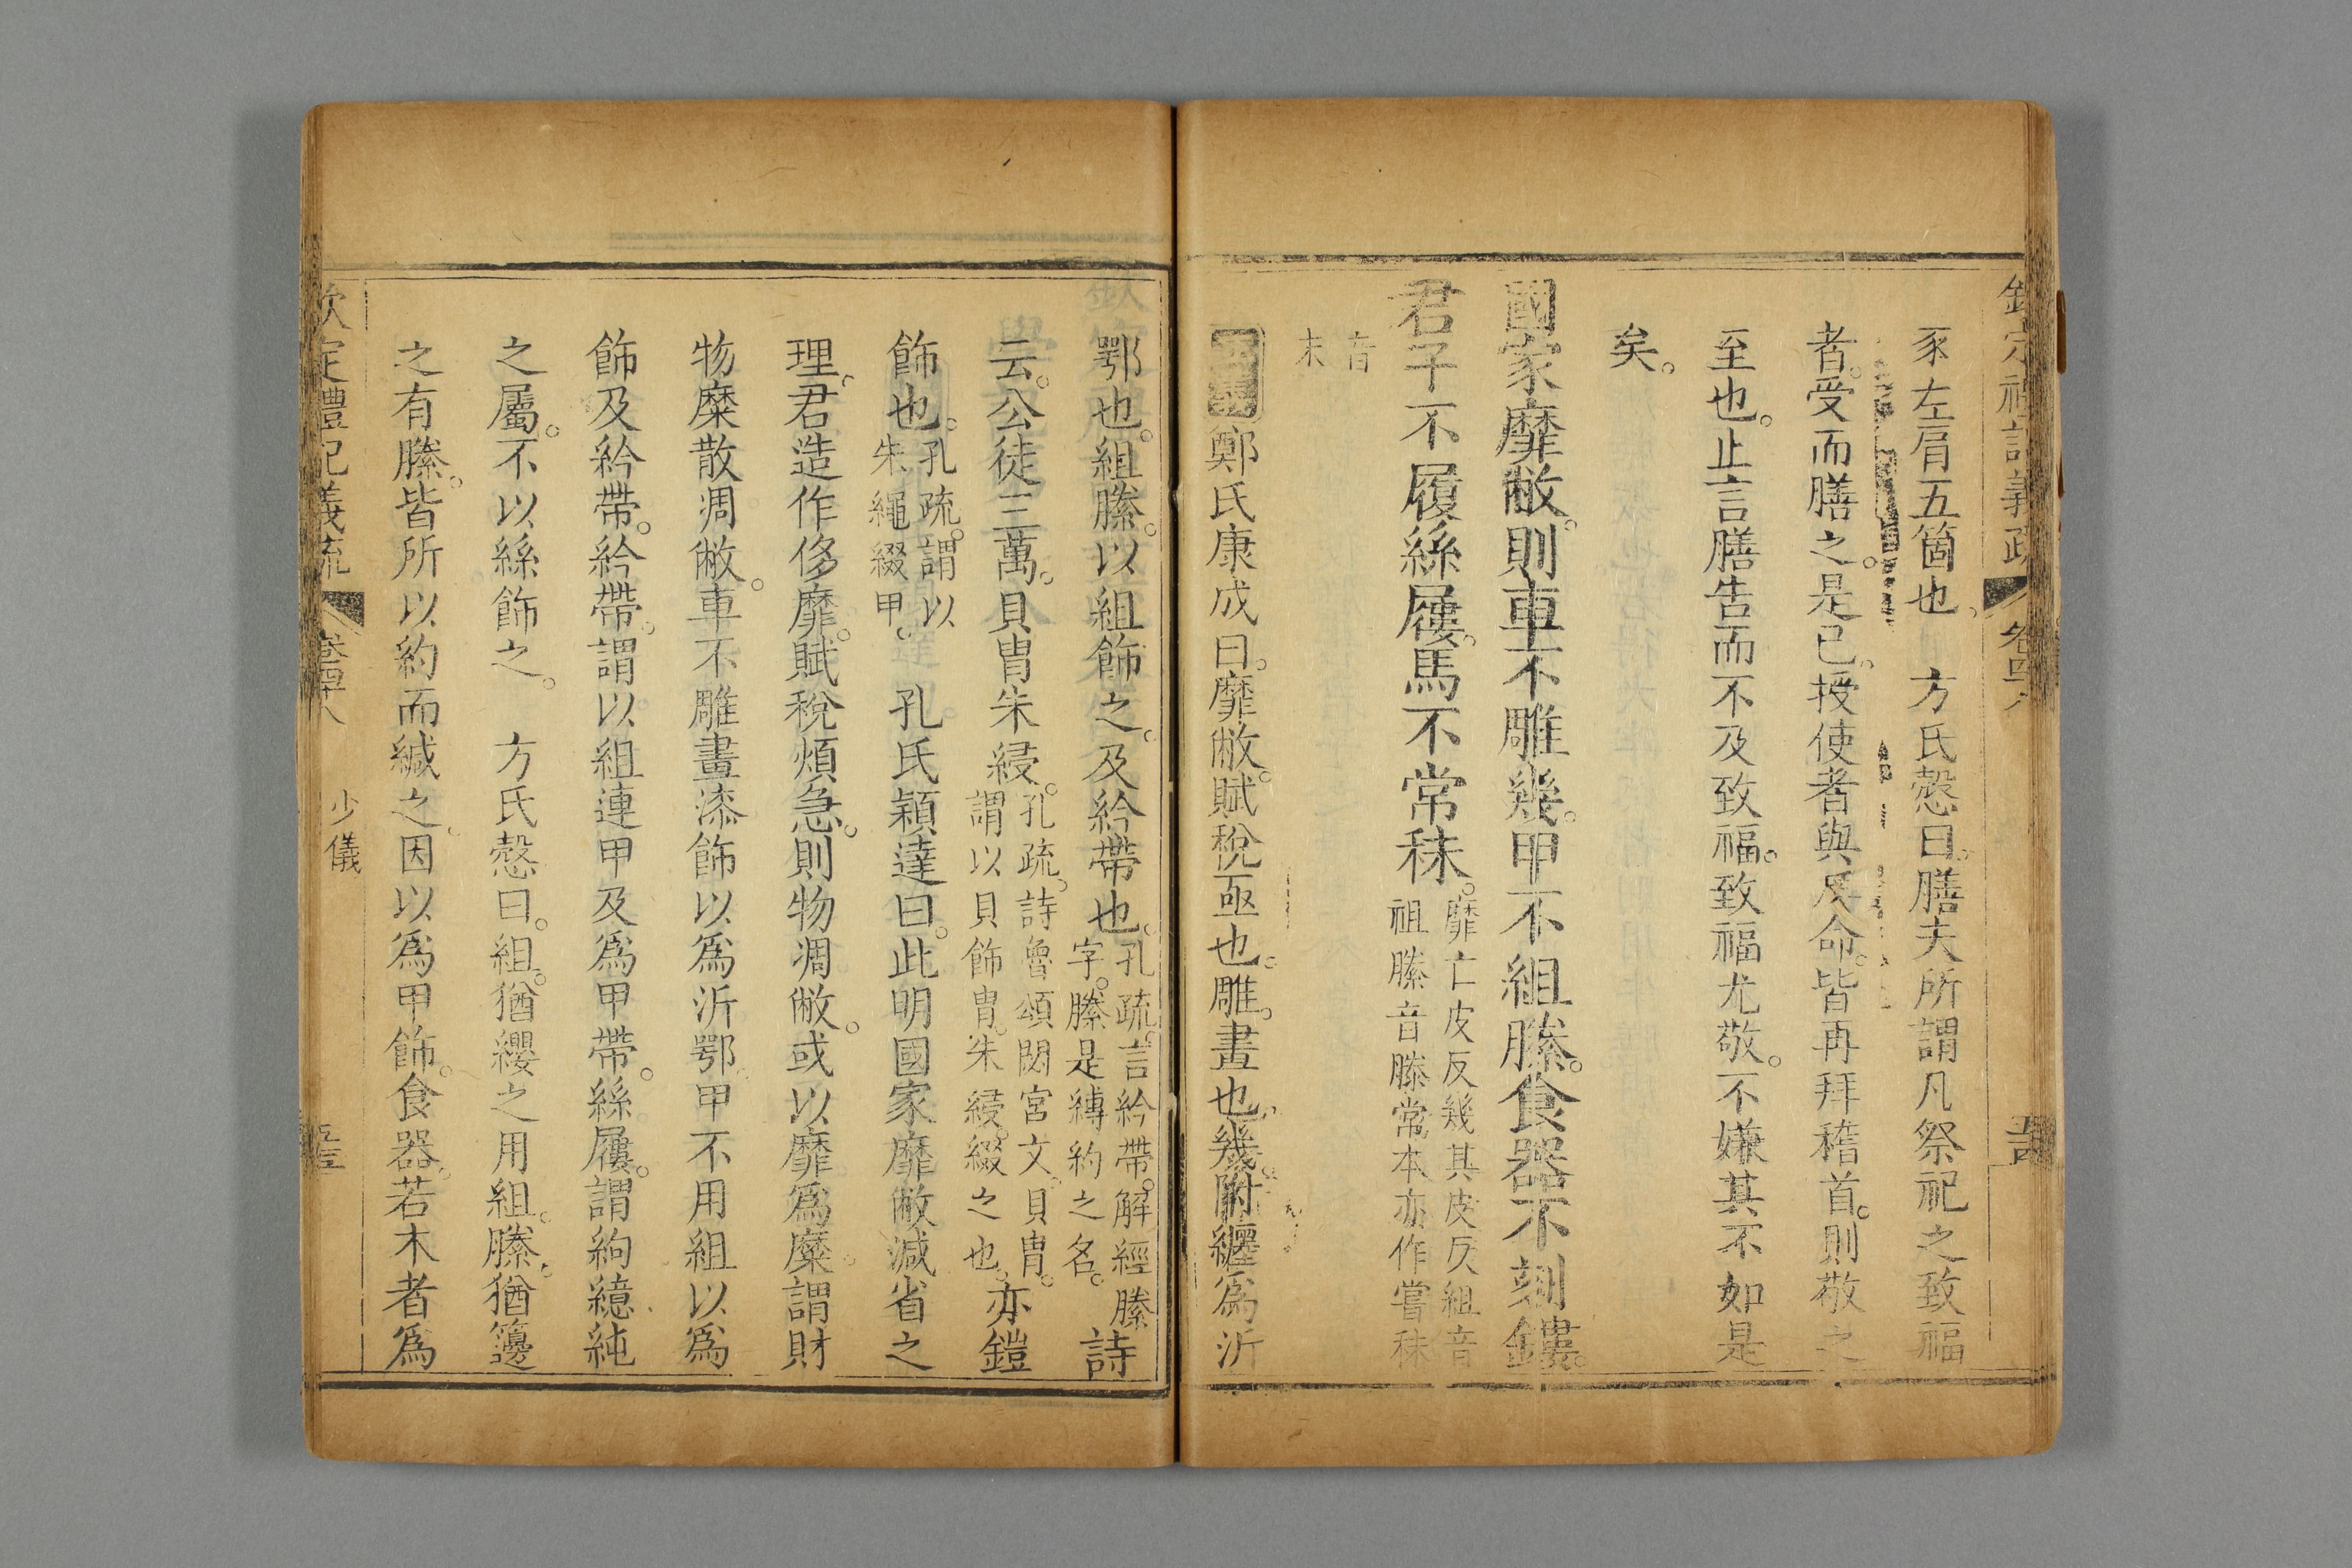 欽定禮記義疏 卷四十八
豕左肩五箇也。 方氏慤曰。膳夫所謂凡祭祀之致福
者。受而膳之。是已。授使者與反命。皆再拜稽首。則敬之
至也。止言膳告而不及致福。致福尤敬。不嫌其不如是
矣。
國家靡敝。則車不雕幾。甲不組縢。食器不刻鏤。
君子不履絲屨。馬不常秣。靡亡皮反幾其皮反組音
祖縢音滕常本亦作嘗秣
音
末
鄭氏康成曰。靡敝。賦稅亟也。雕。畫也。幾。附纏爲沂
鄂也。組縢。以組飾之。及紟帶也。孔疏。言紟帶。解經縢
字。縢是縛約之名。詩
云。公徒三萬。貝胄朱綅。孔疏。詩魯頌閟宮文。貝胄。
謂以貝飾胄。朱綅。綴之也。亦鎧
飾也。孔疏。謂以
朱繩綴甲。 孔氏穎達曰。此明國家靡敝減省之
理。君造作侈靡。賦稅煩急。則物凋敝。或以靡爲糜。謂財
物糜散凋敝。車不雕畫漆飾以爲沂鄂。甲不用組以爲
飾及紟帶。紟帶。謂以組連甲及爲甲帶。絲屨。謂絇繶純
之屬。不以絲飾之。 方氏慤曰。組。猶纓之用組。縢。猶籩
之有縢。皆所以約而緘之。因以爲甲飾。食器。若木者爲
欽定禮記義疏 卷四十八 少儀